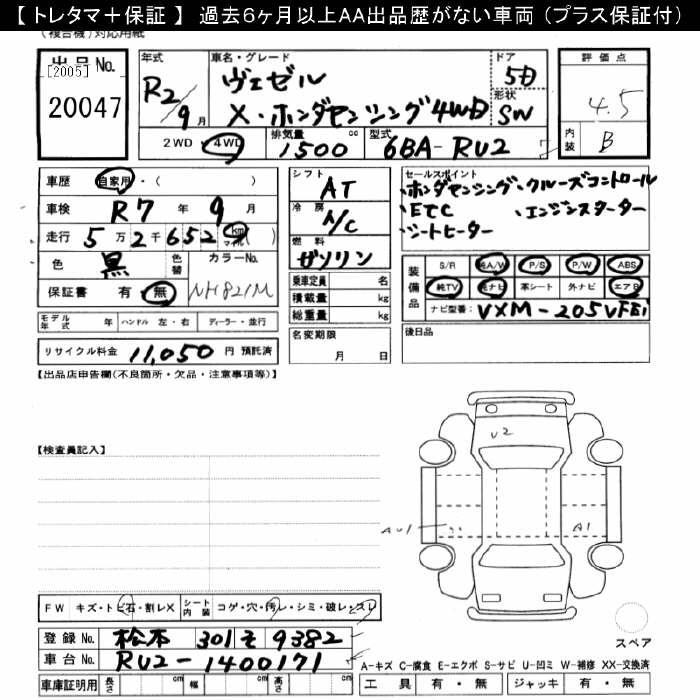 【 トレタマ＋保証 】 過去６ヶ月以上ＡＡ出品歴がない車両（プラス保証付）
(複合機)対応用紙
出品No. [2005] 20047
年式 R2/9月
車名・グレード ヴェゼル
X・ホンダセンシング4WD
ドア 5D
形状 SW
評価点 4.5
内装 B
2WD・4WD 排気量 1500 cc 型式 6BA-RU2
車歴 自家用・( )
車検 R7年9月
走行 5万2千652 km マイル( )
色 黒 色替 カラーNo. NH821M
保証書 有・無
シフト AT
冷房 A/C
燃料 ガソリン
乗車定員 名
積載量 kg
総重量 kg
セールスポイント
・ホンダセンシング・クルーズコントロール
・ETC ・エンジンスターター
・シートヒーター
装備品 S/R 純A/W P/S P/W ABS
純TV 純ナビ 革シート 外ナビ エアB
ナビ型番: VXM-205VFEi
モデル年式 年 ハンドル 左・右 ディーラー・並行
名変期限 月 日
後日品
リサイクル料金 11,050 円 預託済
【出品店申告欄(不良個所・欠品・注意事項等)】
【検査員記入】
U2
A1
FW キズ・トビ石・割レX シート内装 コゲ・穴・汚レ・シミ・破レ・スレ
登録No. 松本 301 そ 9382
車台No. RU2-1400171
スペア
A-キズ C-腐食 E-エクボ S-サビ U-凹ミ W-補修 XX-交換済
車庫証明用 長さ cm 幅 cm 高さ cm
工具 有・無 ジャッキ 有・無